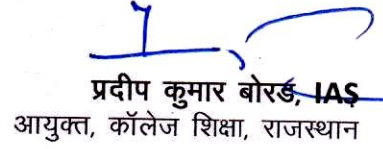 प्रदीप कुमार बोरड, IAS
आयुक्त, कॉलेज शिक्षा, राजस्थान